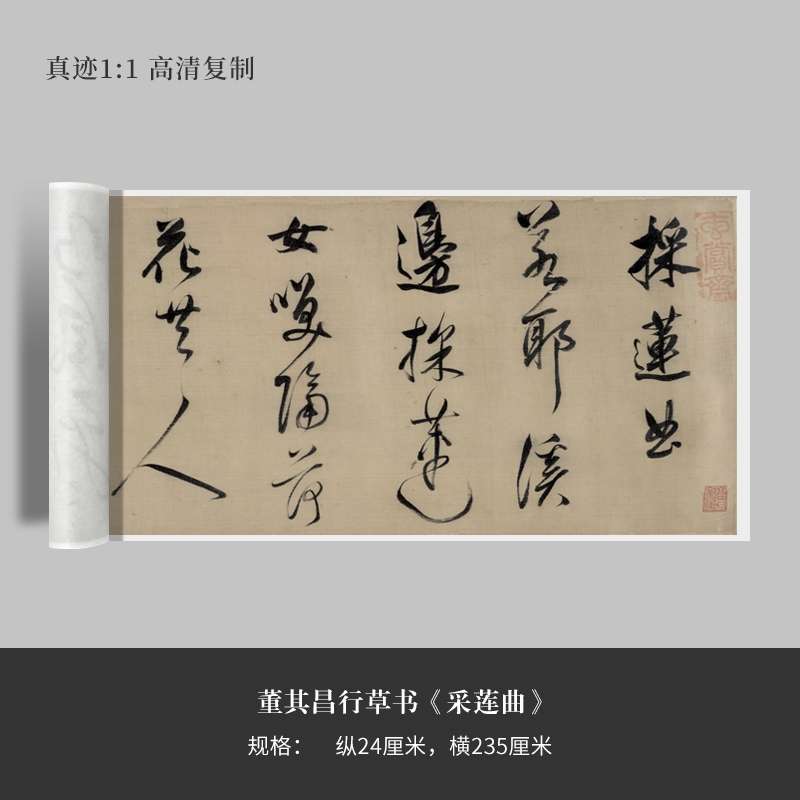 真迹1:1 高清复制
採蓮曲
若耶溪
邊採蓮
女咲隔荷
花共人
董其昌行草书《采莲曲》
规格： 纵24厘米，横235厘米